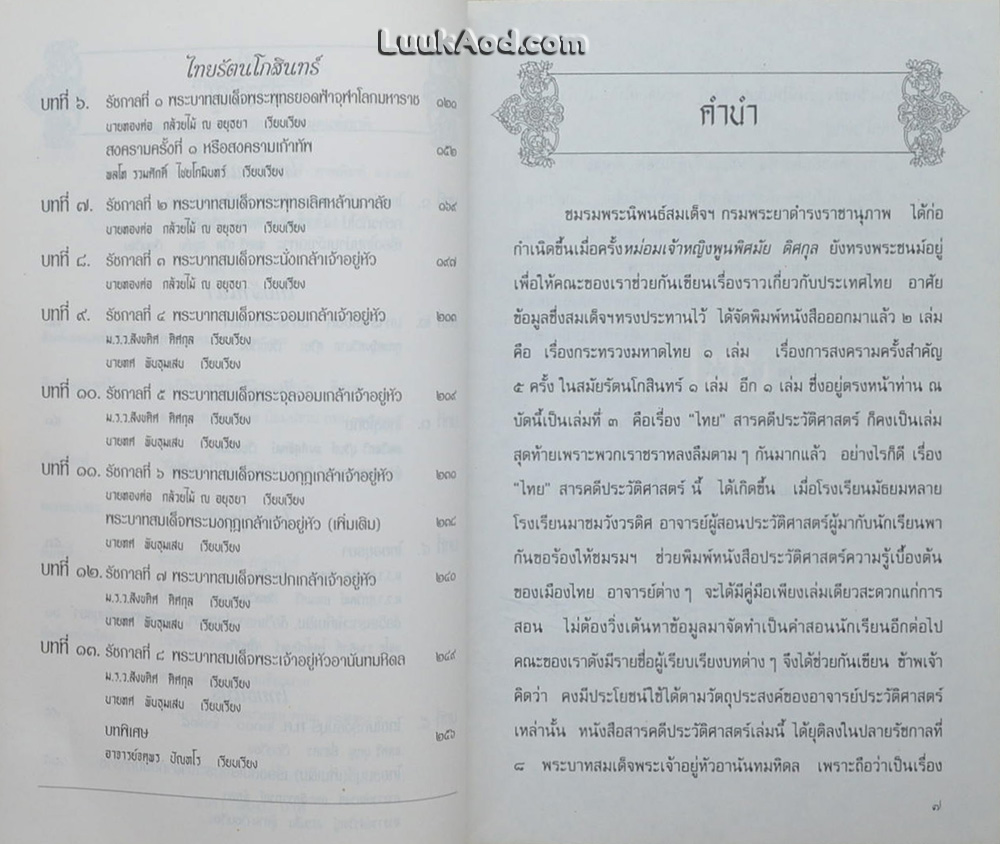 LuukAod.com
ไทยรัตนโกสินทร์
บทที่ ๖. รัชกาลที่ ๑ พระบาทสมเด็จพระพุทธยอดฟ้าจุฬาโลกมหาราช ๑๒๑
นายทองต่อ กล้วยไม้ ณ อยุธยา เรียบเรียง
สงครามครั้งที่ ๑ หรือสงครามเก้าทัพ ๑๕๒
พลโท รวมศักดิ์ ไชยโกมินทร์ เรียบเรียง
บทที่ ๗. รัชกาลที่ ๒ พระบาทสมเด็จพระพุทธเลิศหล้านภาลัย ๑๖๙
นายทองต่อ กล้วยไม้ ณ อยุธยา เรียบเรียง
บทที่ ๘. รัชกาลที่ ๓ พระบาทสมเด็จพระนั่งเกล้าเจ้าอยู่หัว ๑๙๗
นายทองต่อ กล้วยไม้ ณ อยุธยา เรียบเรียง
บทที่ ๙. รัชกาลที่ ๔ พระบาทสมเด็จพระจอมเกล้าเจ้าอยู่หัว ๒๐๓
ม.ร.ว.สังขดิศ ดิศกุล เรียบเรียง
นายทศ พันธุมเสน เรียบเรียง
บทที่ ๑๐. รัชกาลที่ ๕ พระบาทสมเด็จพระจุลจอมเกล้าเจ้าอยู่หัว ๒๐๙
ม.ร.ว.สังขดิศ ดิศกุล เรียบเรียง
นายทศ พันธุมเสน เรียบเรียง
บทที่ ๑๑. รัชกาลที่ ๖ พระบาทสมเด็จพระมงกุฎเกล้าเจ้าอยู่หัว ๒๓๐
นายทองต่อ กล้วยไม้ ณ อยุธยา เรียบเรียง
พระบาทสมเด็จพระมงกุฎเกล้าเจ้าอยู่หัว (เพิ่มเติม) ๒๓๘
นายทศ พันธุมเสน เรียบเรียง
บทที่ ๑๒. รัชกาลที่ ๗ พระบาทสมเด็จพระปกเกล้าเจ้าอยู่หัว ๒๔๐
ม.ร.ว.สังขดิศ ดิศกุล เรียบเรียง
นายทศ พันธุมเสน เรียบเรียง
บทที่ ๑๓. รัชกาลที่ ๘ พระบาทสมเด็จพระเจ้าอยู่หัวอานันทมหิดล ๒๔๙
ม.ร.ว.สังขดิศ ดิศกุล เรียบเรียง
นายทศ พันธุมเสน เรียบเรียง
บทพิเศษ ๒๕๖
ปัณฑโร เรียบเรียง
คำนำ
ชมรมพระนิพนธ์สมเด็จฯ กรมพระยาดำรงราชานุภาพ ได้ก่อ
กำเนิดขึ้นเมื่อครั้งหม่อมเจ้าหญิงพูนพิศมัย ดิศกุล ยังทรงพระชนม์อยู่
เพื่อให้คณะของเราช่วยกันเขียนเรื่องราวเกี่ยวกับประเทศไทย อาศัย
ข้อมูลซึ่งสมเด็จฯทรงประทานไว้ ได้จัดพิมพ์หนังสือออกมาแล้ว ๒ เล่ม
คือ เรื่องกระทรวงมหาดไทย ๑ เล่ม เรื่องการสงครามครั้งสำคัญ
๕ ครั้ง ในสมัยรัตนโกสินทร์ ๑ เล่ม อีก ๑ เล่ม ซึ่งอยู่ตรงหน้าท่าน ณ
บัดนี้เป็นเล่มที่ ๓ คือเรื่อง "ไทย" สารคดีประวัติศาสตร์ ก็คงเป็นเล่ม
สุดท้ายเพราะพวกเราชราหลงลืมตาม ๆ กันมากแล้ว อย่างไรก็ดี เรื่อง
"ไทย" สารคดีประวัติศาสตร์ นี้ ได้เกิดขึ้น เมื่อโรงเรียนมัธยมหลาย
โรงเรียนมาชมวังวรดิศ อาจารย์ผู้สอนประวัติศาสตร์ผู้มากับนักเรียนพา
กันขอร้องให้ชมรมฯ ช่วยพิมพ์หนังสือประวัติศาสตร์ความรู้เบื้องต้น
ของเมืองไทย อาจารย์ต่าง ๆ จะได้มีคู่มือเพียงเล่มเดียวสะดวกแก่การ
สอน ไม่ต้องวิ่งเต้นหาข้อมูลมาจัดทำเป็นคำสอนนักเรียนอีกต่อไป
คณะของเราดังมีรายชื่อผู้เรียบเรียงบทต่าง ๆ จึงได้ช่วยกันเขียน ข้าพเจ้า
คิดว่า คงมีประโยชน์ใช้ได้ตามวัตถุประสงค์ของอาจารย์ประวัติศาสตร์
เหล่านั้น หนังสือสารคดีประวัติศาสตร์เล่มนี้ ได้ยุติลงในปลายรัชกาลที่
๘ พระบาทสมเด็จพระเจ้าอยู่หัวอานันทมหิดล เพราะถือว่าเป็นเรื่อง
๗